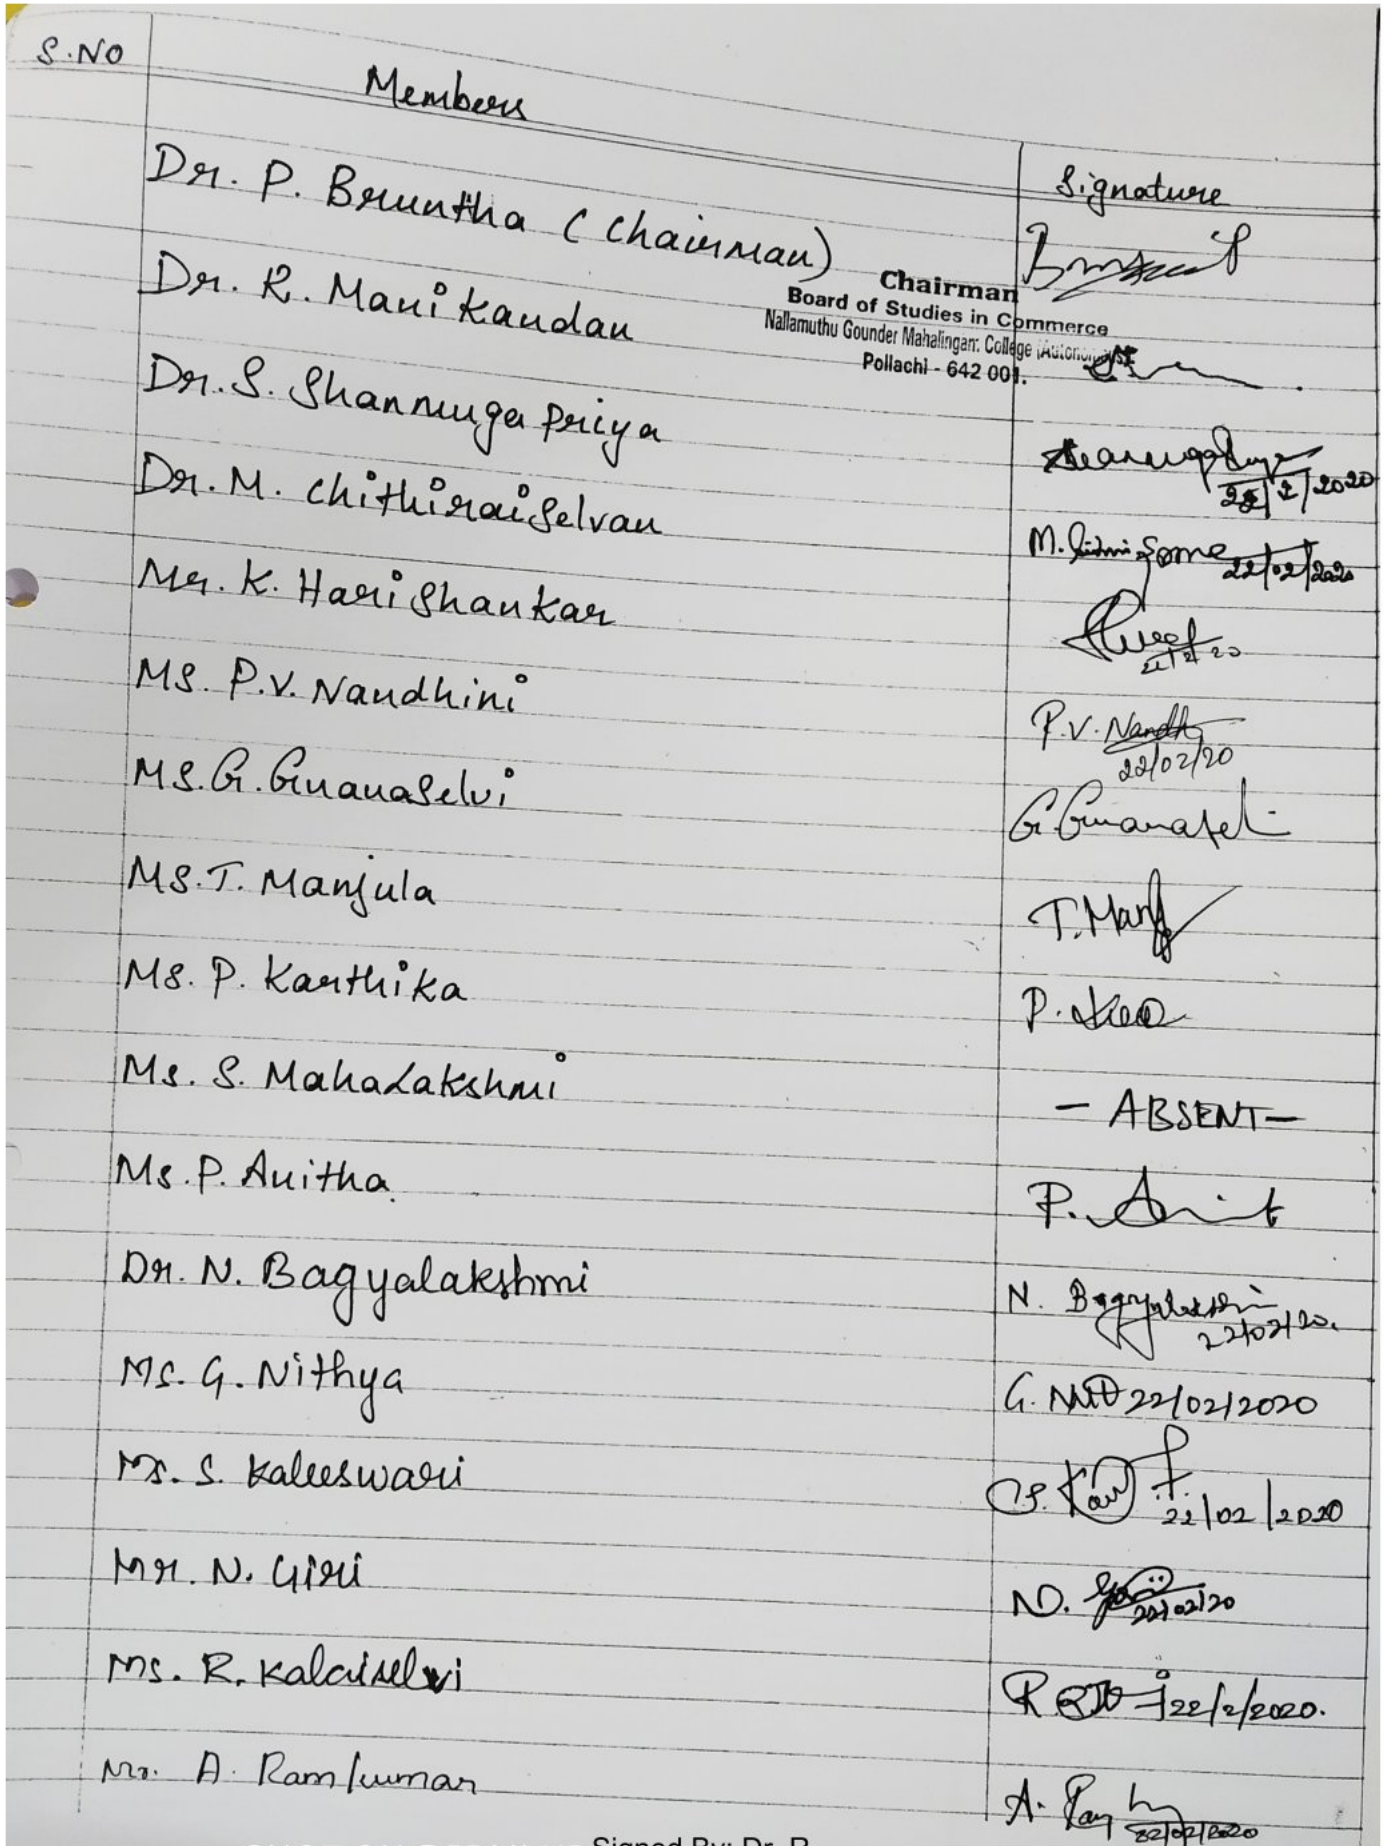 S.NO Members Signature
Dr. P. Bruntha (Chairman)
Chairman
Board of Studies in Commerce
Nallamuthu Gounder Mahalingam College (Autonomous)
Pollachi - 642 001.
Dr. R. Manikandan
Dr. S. Shanmuga Priya
22/2/2020
Dr. M. Chithiraiselvan M.
22/02/2020
Mr. K. Hari Shankar
22/2/20
Ms. P.V. Nandhini P.V. Nandh
22/02/20
Ms. G. Gnanaselvi G. Gnanasel
Ms. T. Manjula T. Manj
Ms. P. Karthika P.
Ms. S. MahaLakshmi - ABSENT -
Ms. P. Anitha. P. Anit
Dr. N. Bagyalakshmi N. Bagyalakshmi
22/02/20.
Ms. G. Nithya G. 22/02/2020
Ms. S. Kaleeswari S.
22/02/2020
Mr. N. Giri N.
22/02/20
Ms. R. Kalaiselvi R 22/2/2020.
Mr. A. Ramkumar A.
22/02/2020
Signed By: Dr. R